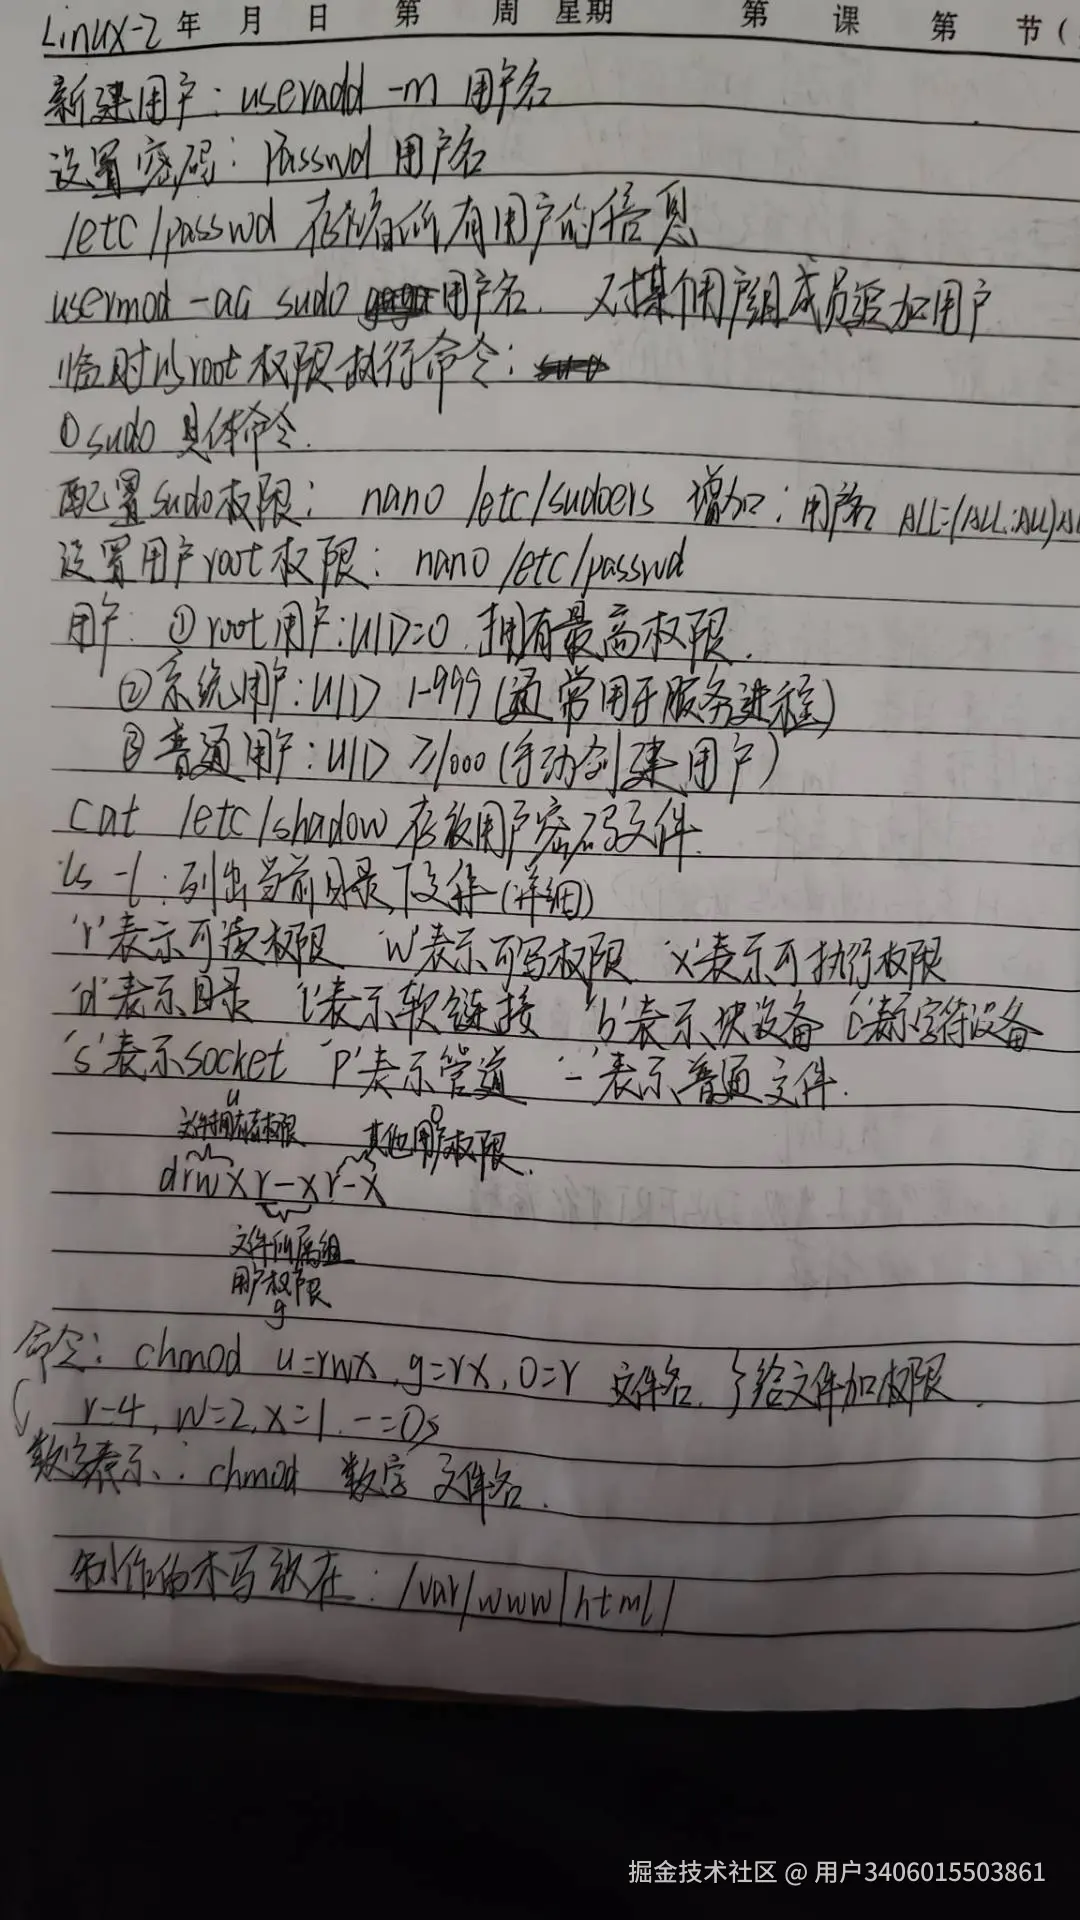 Linux-2 年 月 日 第 周 星期 第 课 第 节(
新建用户：useradd -m 用户名
设置密码：passwd 用户名
/etc/passwd 存储所有用户的信息
usermod -aG sudo 用户名. 对某个用户组成员追加用户
临时以root权限执行命令：
①sudo 具体命令.
配置sudo权限： nano /etc/sudoers 增加：用户名 ALL=(ALL:ALL)AL
设置用户root权限：nano /etc/passwd
用户：①root用户：UID=0.拥有最高权限.
②系统用户：UID 1-999(通常用于服务进程)
③普通用户：UID ≥1000(手动创建用户)
cat /etc/shadow 存放用户密码文件.
ls -l：列出当前目录下文件(详细)
'r'表示可读权限 'w'表示可写权限 'x'表示可执行权限
'd'表示目录 'l'表示软链接 'b'表示块设备 'c'表示字符设备
's'表示socket 'p'表示管道 '-'表示普通文件.
u o
文件拥有者权限 其他用户权限.
drwxr-xr-x
文件所属组
用户权限
g
命令：chmod u=rwx,g=rx,o=r 文件名. 给文件加权限.
r=4,w=2,x=1.-=0
数字表示：chmod 数字 文件名.
制作的木马放在：/var/www/html/
掘金技术社区 @ 用户3406015503861